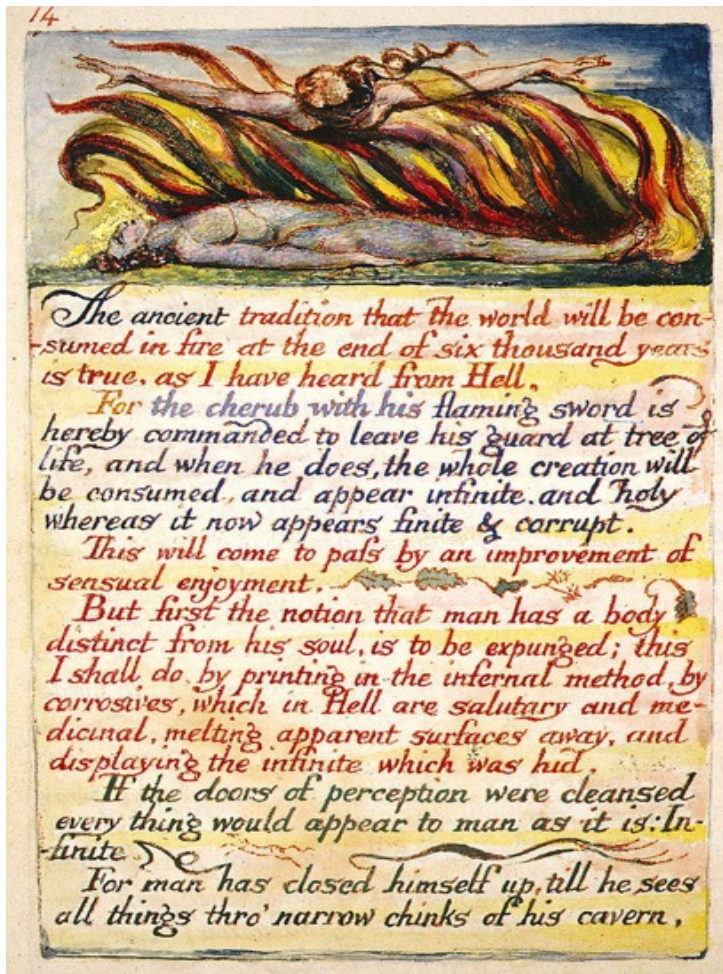 14
The ancient tradition that the world will be con-
-sumed in fire at the end of six thousand years
is true. as I have heard from Hell.
For the cherub with his flaming sword is
hereby commanded to leave his guard at tree of
life, and when he does, the whole creation will
be consumed, and appear infinite. and holy
whereas it now appears finite & corrupt.
This will come to paſs by an improvement of
sensual enjoyment.
But first the notion that man has a body
distinct from his soul, is to be expunged; this
I shall do, by printing in the infernal method, by
corrosives, which in Hell are salutary and me-
dicinal, melting apparent surfaces away, and
displaying the infinite which was hid.
If the doors of perception were cleansed
every thing would appear to man as it is: In-
-finite
For man has closed himself up, till he sees
all things thro' narrow chinks of his cavern,